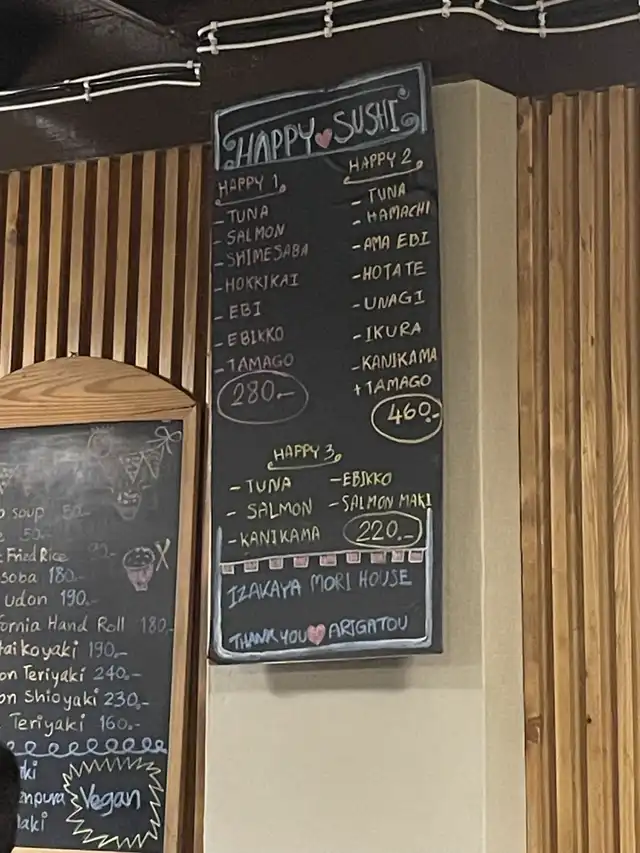 HAPPY SUSHI
HAPPY 1
- TUNA
- SALMON
- SHIMESABA
- HOKKIKAI
- EBI
- EBIKKO
- TAMAGO
280.-
HAPPY 2
- TUNA
- HAMACHI
- AMA EBI
- HOTATE
- UNAGI
- IKURA
- KANIKAMA
+ TAMAGO
460.-
HAPPY 3
- TUNA
- SALMON
- KANIKAMA
- EBIKKO
- SALMON MAKI
220.-
IZAKAYA MORI HOUSE
THANK YOU ARIGATOU
soup 50.-
50.-
Fried Rice 90.-
soba 180.-
udon 190.-
ornia Hand Roll 180.-
koyaki 190.-
on Teriyaki 240.-
on Shioyaki 230.-
Teriyaki 160.-
Vegan